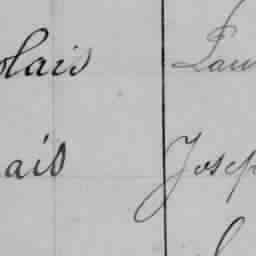 olais Lau
ais Josep